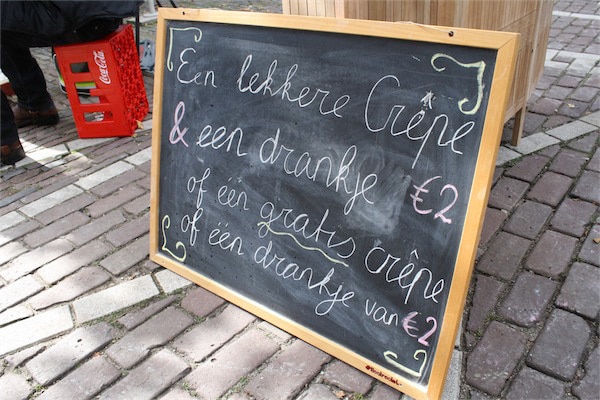 Coca-Cola
Een lekkere Crêpe
& een drankje €2
of één gratis crêpe
of één drankje van €2